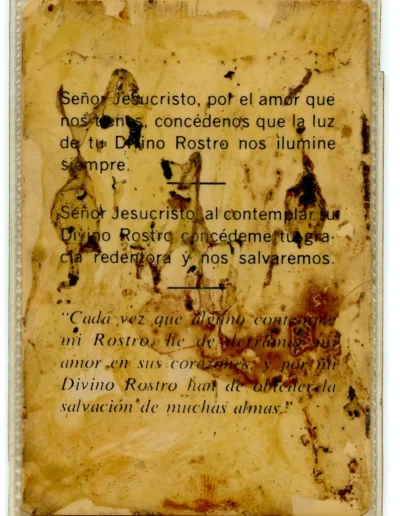 Señor Jesucristo, por el amor que
nos tienes, concédenos que la luz
de tu Divino Rostro nos ilumine
siempre.
Señor Jesucristo, al contemplar tu
Divino Rostro concédeme tu gra-
cia redentora y nos salvaremos.
"Cada vez que alguno contemple
mi Rostro, he de derramar mi
amor en sus corazones, y por mi
Divino Rostro han de obtener la
salvación de muchas almas."